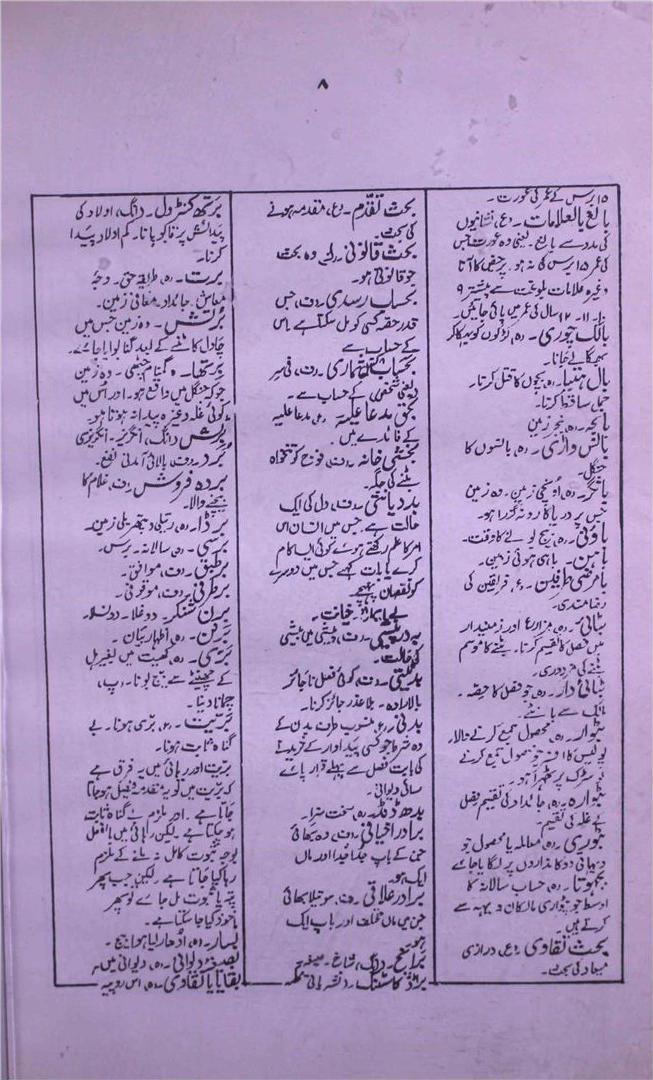 ۸
۱۵ برس کے عمر کی عورت۔
بالغ بالعلامات۔ (ع) نشانیوں
کی مدد سے بالغ۔ یعنی وہ عورت جس
کی عمر ۱۵ برس کی نہ ہو۔ پر حیض کا آنا
وغیرہ علامات بلوغت سے پیشتر ۹
۱۰۔ ۱۱۔ ۱۲ سال کی عمر میں پائی جائیں۔
بالک چوری۔ (ہ) لڑکوں کو بہکا کر
بھگا لے جانا۔
بال ہتیا۔ (ہ) بچوں کا قتل کرنا۔
حمل ساقط کرنا۔
بانجھ۔ (ہ) بنجر زمین
بانس واڑی۔ (ہ) بانسوں کا
جنگل۔
بانگر۔ (ہ) اونچی زمین۔ وہ زمین
جس پر دریا کا رو نہ گزرا ہو۔
باونی۔ (ہ) بیج بونے کا وقت۔
باہن۔ باہی ہوئی زمین۔
بامرضی طرفین۔ (ع) فریقین کی
رضامندی۔
بٹائی۔ (ہ) مزارع اور زمیندار
میں فصل کا تقسیم کرنا۔ بٹنے کا موسم
بٹنے کی مزدوری۔
بٹائی دار۔ (ہ) جو فصل کا حصہ
مالک سے بانٹے۔
بٹوار۔ (ہ) محصول جمع کرنے والا۔
پولیس کا افسر جو محصول جمع کرنے
پر سڑک پر ٹھہرا ہو۔
بٹوارہ۔ (ہ) جائداد کی تقسیم۔ فصل
یا غلہ کی تقسیم۔
بٹوری۔ (ہ) معاملہ یا محصول جو
دیہاتی دوکانداروں پر لگایا جائے
بجھوتا۔ (ہ) حساب سالانہ کا
اوسط جو پٹواری مالکان دیہہ سے
کرتے ہیں۔
بحث تقاوی۔ (ع) درازی
میعاد کی بحث۔
بحث تقدم۔ (ع) مقدم ہونے
کی بحث۔
بحث قانونی۔ (ع) وہ بحث
جو قانونی ہو۔
بحساب رسدی۔ (ف) جس
قدر حصہ کسی کو مل سکتا ہے اس
کے حساب سے
بحساب نفری شماری۔ (ف) فی سر
(یعنی شخص) کے حساب سے۔
بحق مدعا علیہ۔ (ع) مدعا علیہ
کے فائدے میں۔
بخشی خانہ۔ (ف) فوج کو تنخواہ
بٹنے کی جگہ۔
بددیانتی۔ (ف) دل کی ایک
حالت ہے جس میں انسان اس
امر کا علم رکھتے ہوئے کوئی ایسا کام
کرے یا بات کہے جس میں دوسرے
کو نقصان پہنچے۔
بے ایمانی۔ خیانت۔
بہ درپیشی۔ (ف) پیشی میں پیشی
کی حالت۔
بدنیتی۔ (ف) کوئی فعل ناجائز
بالارادہ۔ بلاعذر جائز کرنا۔
بدنی۔ (ع) منسوب طرف بدن کے
وہ شرط جو کسی پیداوار کے خریدنے
کی بابت فصل سے پہلے قرار پائے
سائی دیوانی۔
بدھ ڈنڈ۔ (ہ) سخت سزا۔
برادر اخیافی۔ (ف) وہ بھائی
جن کے باپ جدا جدا اور ماں
ایک ہو۔
برادر علاتی۔ (ف) سوتیلا بھائی
جن میں ماں مختلف اور باپ ایک
ہو۔
برانچ۔ (انگ) شاخ۔ صیغہ
براڈ کاسٹنگ۔
برتھ کنٹرول۔ (انگ) اولاد کی
پیدائش پر قابو پانا۔ کم اولاد پیدا
کرنا۔
برت۔ (ہ) طریقہ حق۔ وجہ
معاش۔ جائداد۔ معافی زمین۔
برتش۔ وہ زمین جس میں
چاول کاٹنے کے بعد گنا بویا جائے۔
وہ زمین
جو کہ جنگل میں واقع ہو۔ اور اس میں
کوئی غلہ وغیرہ پیدا نہ ہوتا ہو
برٹش۔ (انگ) انگریز۔ انگریزی
برد۔ (ف) بالائی آمدنی۔ نفع۔
بردہ فروش۔ (ف) غلام کا
بیچنے والا۔
برڈا۔ (ہ) رتیلی و پتھریلی زمین۔
برسی۔ (ہ) سالانہ۔ برس۔
برطبق۔ (ف) موافق۔
برطرفی۔ (ف) موقوفی۔
برن سنکر۔ دوغلا۔ دونسلا۔
برنن۔ (ہ) اظہار بیان۔
بری۔ (ہ) کھیت میں بغیر ہل
کے چھینٹے سے بیج بونا۔ (پ)
جمانا دینا۔
بریت۔ (ع) بری ہونا۔ بے
گناہ ثابت ہونا۔
بریت اور رہائی میں یہ فرق ہے
کہ بریت میں گویہ مقدمہ فیصل ہو جاتا
جاتا ہے۔ اور ملزم بے گناہ ثابت
ہو چکتا ہے۔ لیکن رہائی میں بالفعل
بوجہ ثبوت کامل نہ ملنے کے ملزم
رہا کیا جاتا ہے۔ لیکن جب پھر
پتہ یا ثبوت مل جائے تو پھر
ماخوذ کیا جا سکتا ہے۔
بسار۔ (ہ) ادھار لیا ہوا بیج۔
بصیغہ دیوانی۔ (ہ) دیوانی میں
بقایا تقاوی۔ (ہ) اس روپیہ